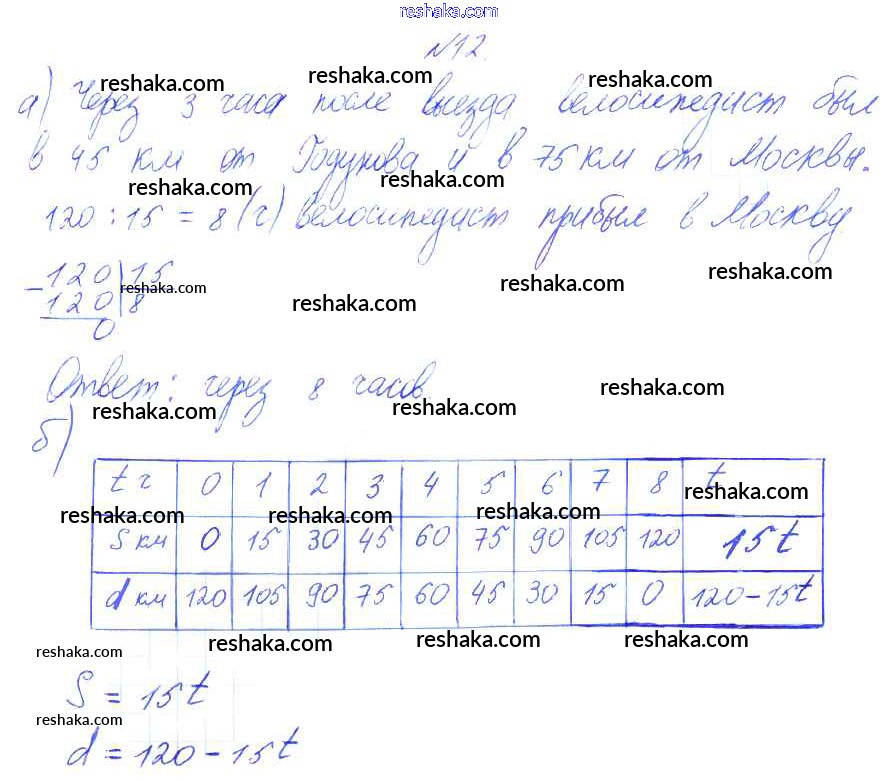 reshaka.com
№12.
reshaka.com reshaka.com reshaka.com
а) Через 3 часа после выезда велосипедист был
в 45 км от Годунова и в 75 км от Москвы.
reshaka.com reshaka.com
120 : 15 = 8 (ч) велосипедист прибыл в Москву.
reshaka.com
- 120 | 15
reshaka.com reshaka.com reshaka.com
120 | 8
0
Ответ: через 8 часов.
reshaka.com reshaka.com reshaka.com
б)
t ч 0 1 2 3 4 5 6 7 8 t
reshaka.com reshaka.com reshaka.com reshaka.com
S км 0 15 30 45 60 75 90 105 120 15t
d км 120 105 90 75 60 45 30 15 0 120-15t
reshaka.com reshaka.com reshaka.com
reshaka.com
S = 15t
reshaka.com
d = 120 - 15t